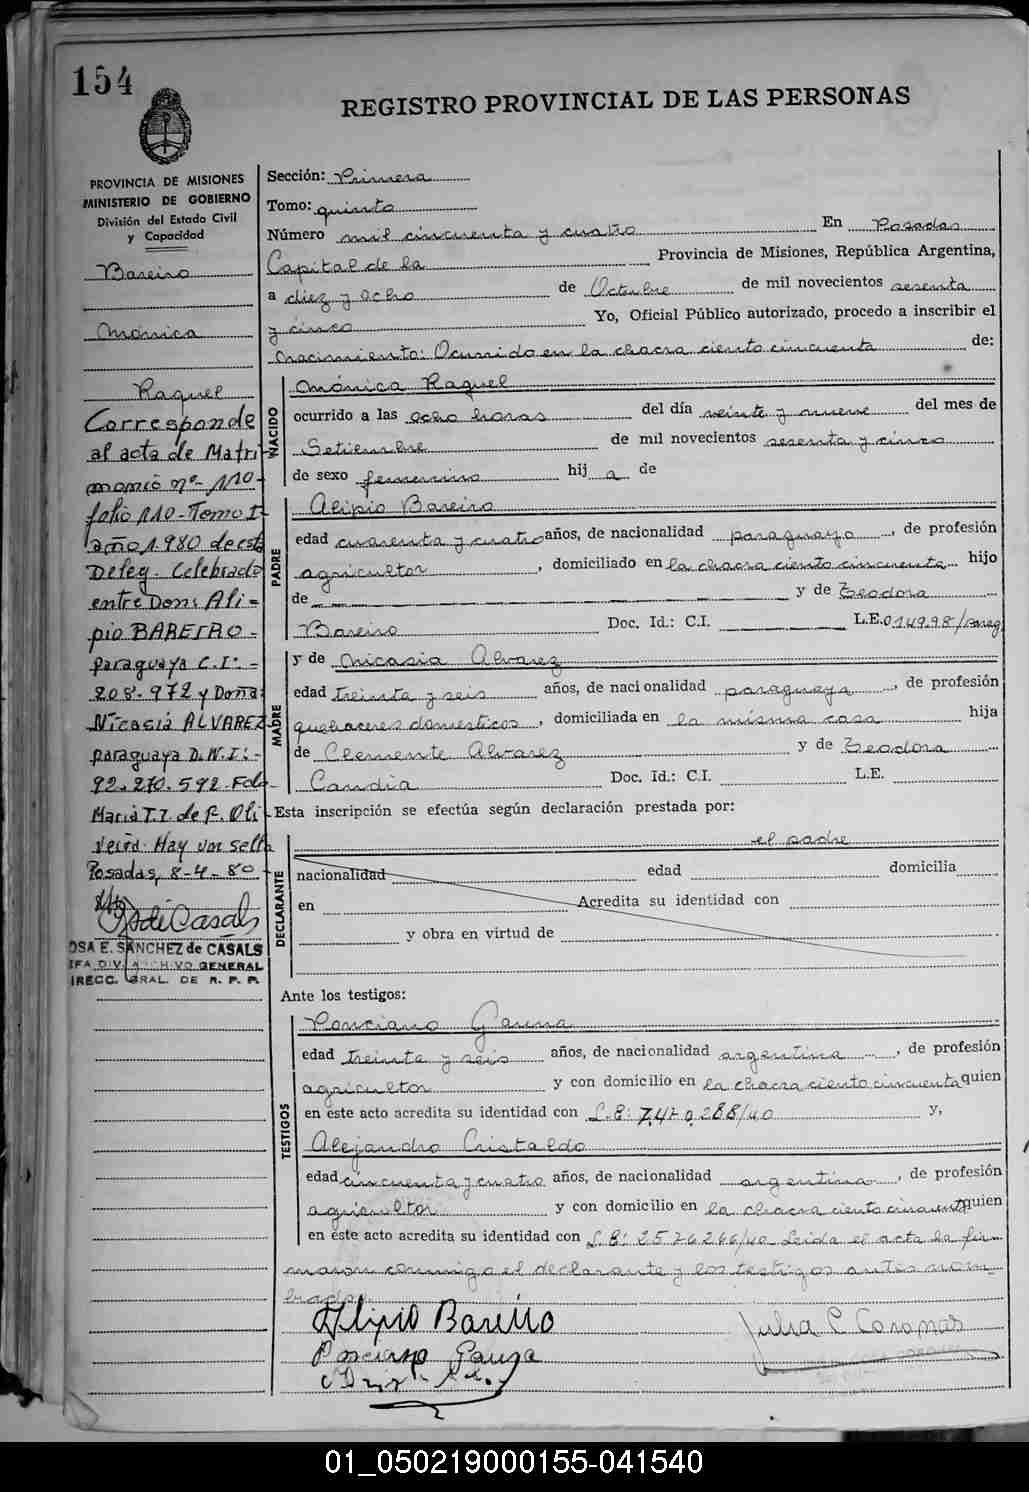 154
REGISTRO PROVINCIAL DE LAS PERSONAS
PROVINCIA DE MISIONES
MINISTERIO DE GOBIERNO
División del Estado Civil
y Capacidad
Bareiro
Mónica
Raquel
Corresponde
al acta de Matri-
monio nº- 110-
folio 110-Tomo I-
año 1.980 de esta
Deleg. Celebrado
entre Don: Ali-
pio BAREIRO-
paraguaya C.I:-
208.972 y Doña:
Nicasia ALVAREZ
paraguaya D.N.I:-
92.270.592. Fdo-
Maria T.Z. de F. Oli-
veira. Hay un sello
Posadas, 8-4-80-
OSA E. SANCHEZ de CASALS
EFA DIV. ARCHIVO GENERAL
IRECC. GRAL. DE R. P. P.
Sección: Primera
Tomo: quinto
Número mil cincuenta y cuatro En Posadas
Capital de la Provincia de Misiones, República Argentina,
a diez y ocho de Octubre de mil novecientos sesenta
y cinco Yo, Oficial Público autorizado, procedo a inscribir el
nacimiento: Ocurrido en la chacra ciento cincuenta de:
NACIDO
Mónica Raquel
ocurrido a las ocho horas del día veinte y nueve del mes de
Setiembre de mil novecientos sesenta y cinco
de sexo femenino hij a de
PADRE
Alipio Bareiro
edad cuarenta y cuatro años, de nacionalidad paraguayo, de profesión
agricultor, domiciliado en la chacra ciento cincuenta hijo
de y de Teodora
Bareiro Doc. Id.: C.I. L.E. 014998/parag
MADRE
y de Nicasia Alvarez
edad treinta y seis años, de nacionalidad paraguaya, de profesión
quehaceres domesticos, domiciliada en la misma casa hija
de Clemente Alvarez y de Teodora
Candia Doc. Id.: C.I. L.E.
Esta inscripción se efectúa según declaración prestada por:
DECLARANTE
el padre
nacionalidad edad domicilia
en Acredita su identidad con
y obra en virtud de
Ante los testigos:
TESTIGOS
Ponciano Gauna
edad treinta y seis años, de nacionalidad argentina, de profesión
agricultor y con domicilio en la chacra ciento cincuenta quien
en este acto acredita su identidad con L.E: 7.470.288/40 y,
Alejandro Cristaldo
edad cincuenta y cuatro años, de nacionalidad argentina, de profesión
agricultor y con domicilio en la chacra ciento cincuenta quien
en este acto acredita su identidad con L.E: 2576266/40 Leida el acta la fir-
maron conmigo el declarante y los testigos antes nom-
brados.
Alipio Bareiro
Ponciano Gauna
Julia C Coronas
01_050219000155-041540